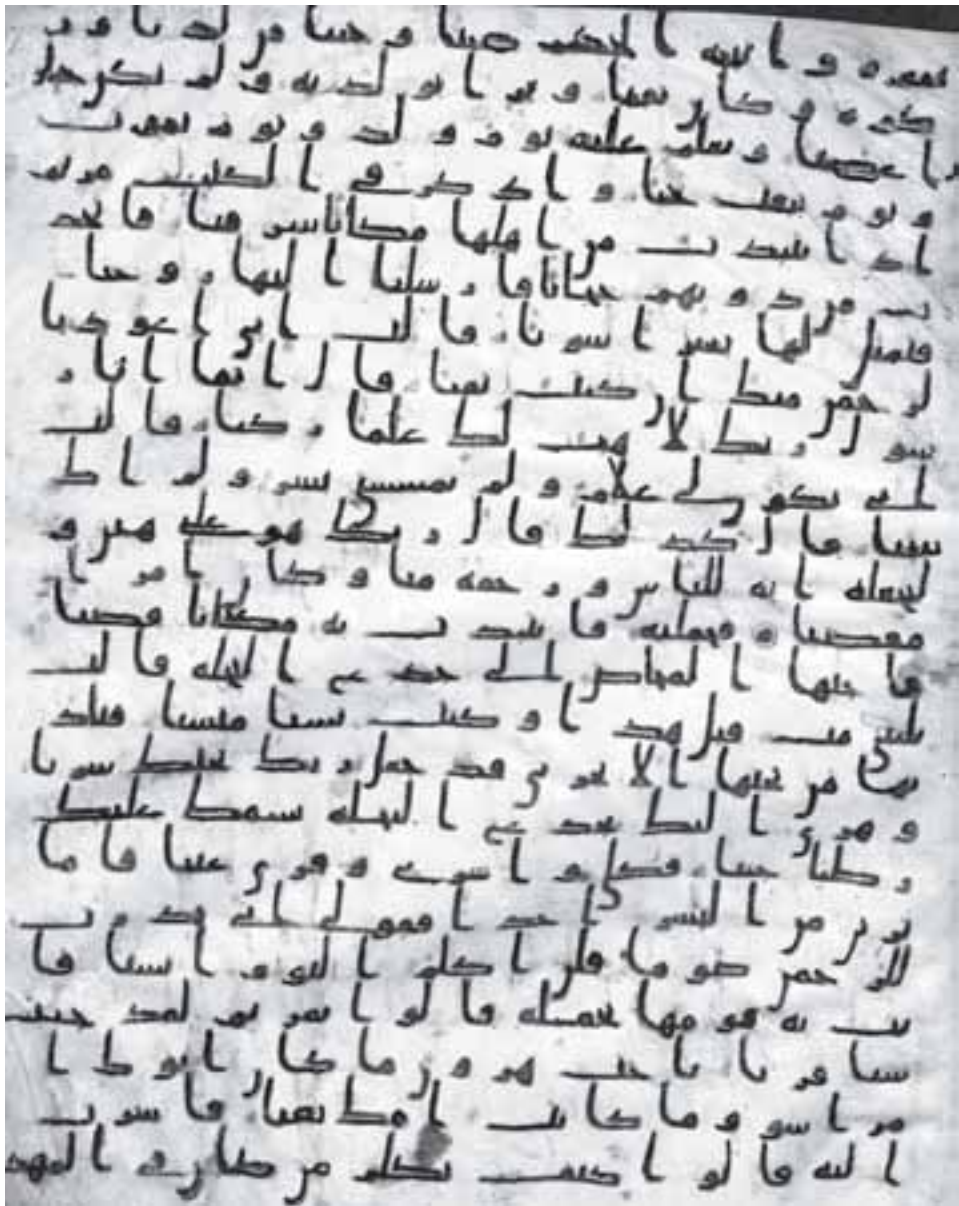 بقوه و اتينه الحكم صبيا و حننا من لدنا و ز
كوه و كان تقيا و برا بولديه و لم يكن جبا
را عصيا و سلم عليه يوم ولد و يوم يموت
و يوم يبعث حيا و اذكر في الكتب مريم
اذ انتبذت من اهلها مكانا شرقيا فاتخذ
ت من دونهم حجابا فارسلنا اليها روحنا
فتمثل لها بشرا سويا قالت اني اعوذ با
لرحمن منك ان كنت تقيا قال انما انا ر
سول ربك لاهب لك غلما زكيا قالت
انى يكون لي غلم و لم يمسسني بشر و لم اك
بغيا قال كذلك قال ربك هو علي هين و
لنجعله ايه للناس و رحمه منا و كان امرا
مقضيا فحملته فانتبذت به مكانا قصيا
فاجاها المخاض الى جذع النخله قالت
يليتني مت قبل هذا و كنت نسيا منسيا فناد
يها من تحتها الا تحزني قد جعل ربك تحتك سريا
و هزي اليك بجذع النخله تسقط عليك
رطبا جنيا فكلي و اشربي و قري عينا فاما
ترين من البشر احدا فقولي اني نذرت
للرحمن صوما فلن اكلم اليوم انسيا فا
تت به قومها تحمله قالوا يمريم لقد جيت
شيا فريا ياخت هرون ما كان ابوك ا
مرا سو و ما كانت امك بغيا فاشارت
اليه قالوا كيف نكلم من كان في المهد